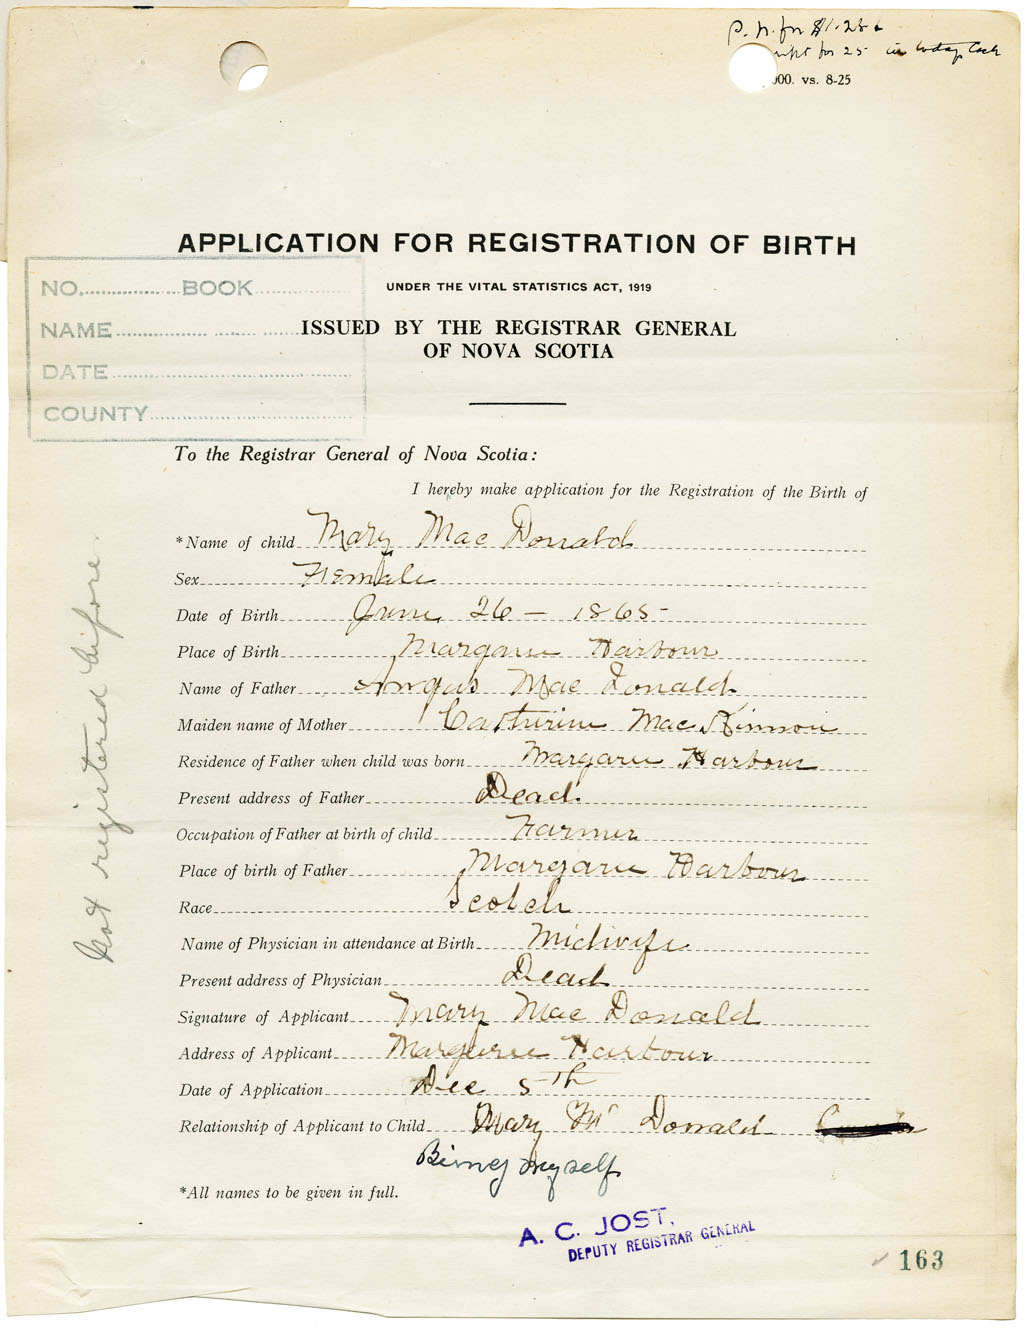 P. N. for $1.25
for 25 in today
000. vs. 8-25
APPLICATION FOR REGISTRATION OF BIRTH
UNDER THE VITAL STATISTICS ACT, 1919
ISSUED BY THE REGISTRAR GENERAL
OF NOVA SCOTIA
NO. BOOK
NAME
DATE
COUNTY
To the Registrar General of Nova Scotia:
I hereby make application for the Registration of the Birth of
*Name of child Mary Mac Donald
Sex Female
Date of Birth June 26 - 1865-
Place of Birth Margaree Harbour
Name of Father Angus Mac Donald
Maiden name of Mother Catherine Mac Kinnon
Residence of Father when child was born Margaree Harbour
Present address of Father Dead
Occupation of Father at birth of child Farmer
Place of birth of Father Margaree Harbour
Race Scotch
Name of Physician in attendance at Birth Midwife
Present address of Physician Dead
Signature of Applicant Mary Mac Donald
Address of Applicant Margaree Harbour
Date of Application Dec 5th
Relationship of Applicant to Child Mary Mc Donald
Being myself
*All names to be given in full.
A. C. JOST,
DEPUTY REGISTRAR GENERAL
163
Not registered before.